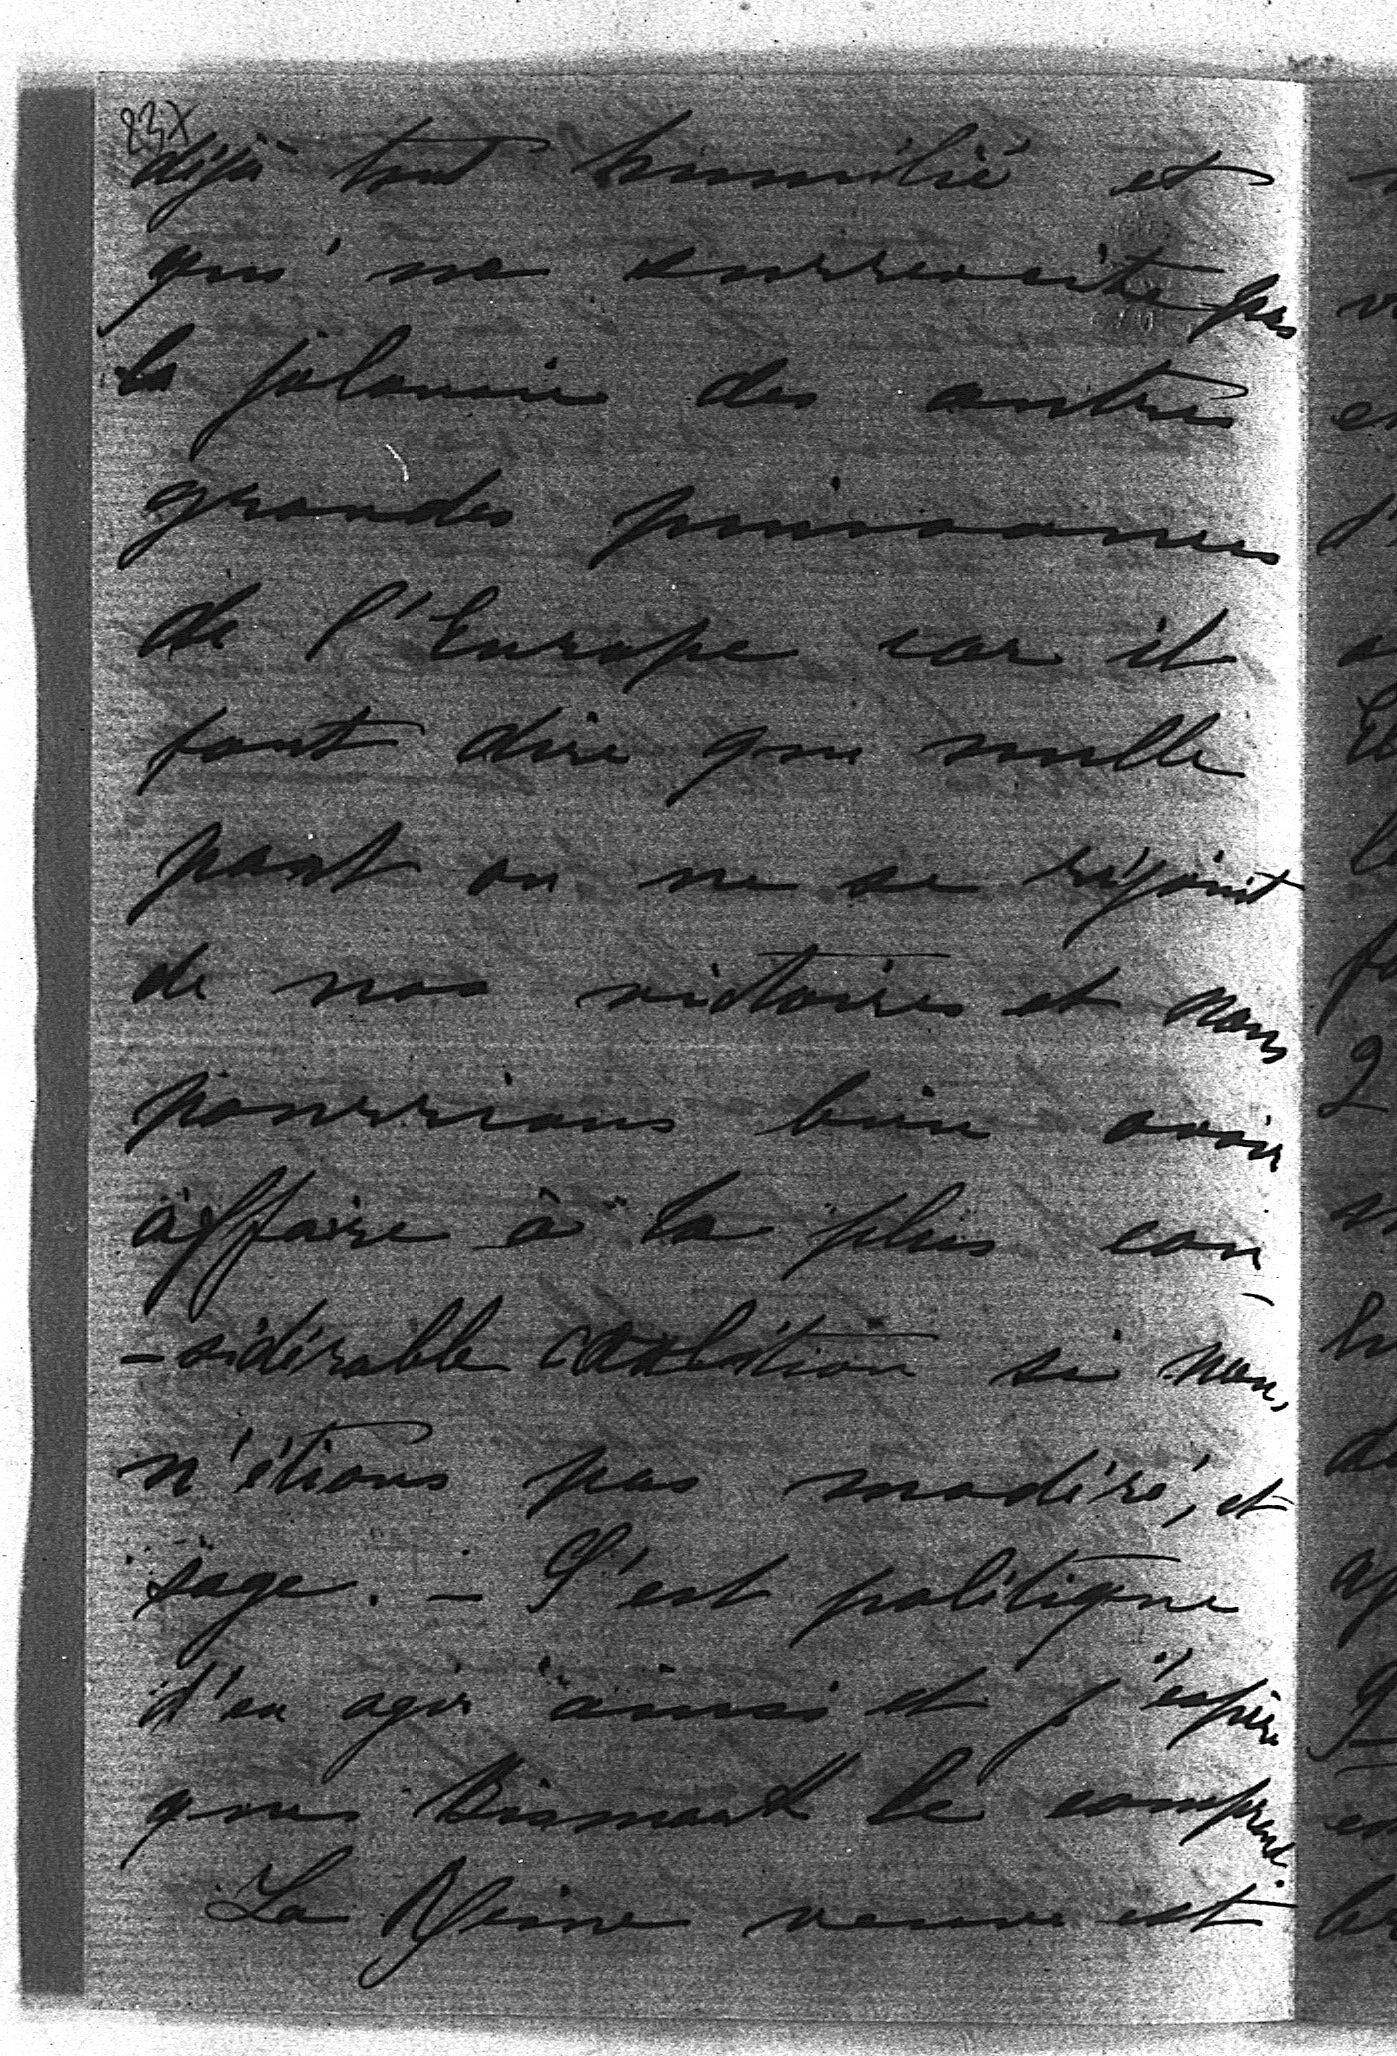 23X
déjà tout humilié et
qui ne surrexcite pas
la jalousie des autres
grandes puissances
de l'Europe car il
faut dire que nulle
part on ne se réjouit
de nos victoires et nous
pourrions bien avoir
affaire à la plus con
-sidérable coalition si nous
n'étions pas modéré, et
sage. – C'est politique
d'en agir ainsi et j'espère
que Bismark le comprend.
La Reine veuve est